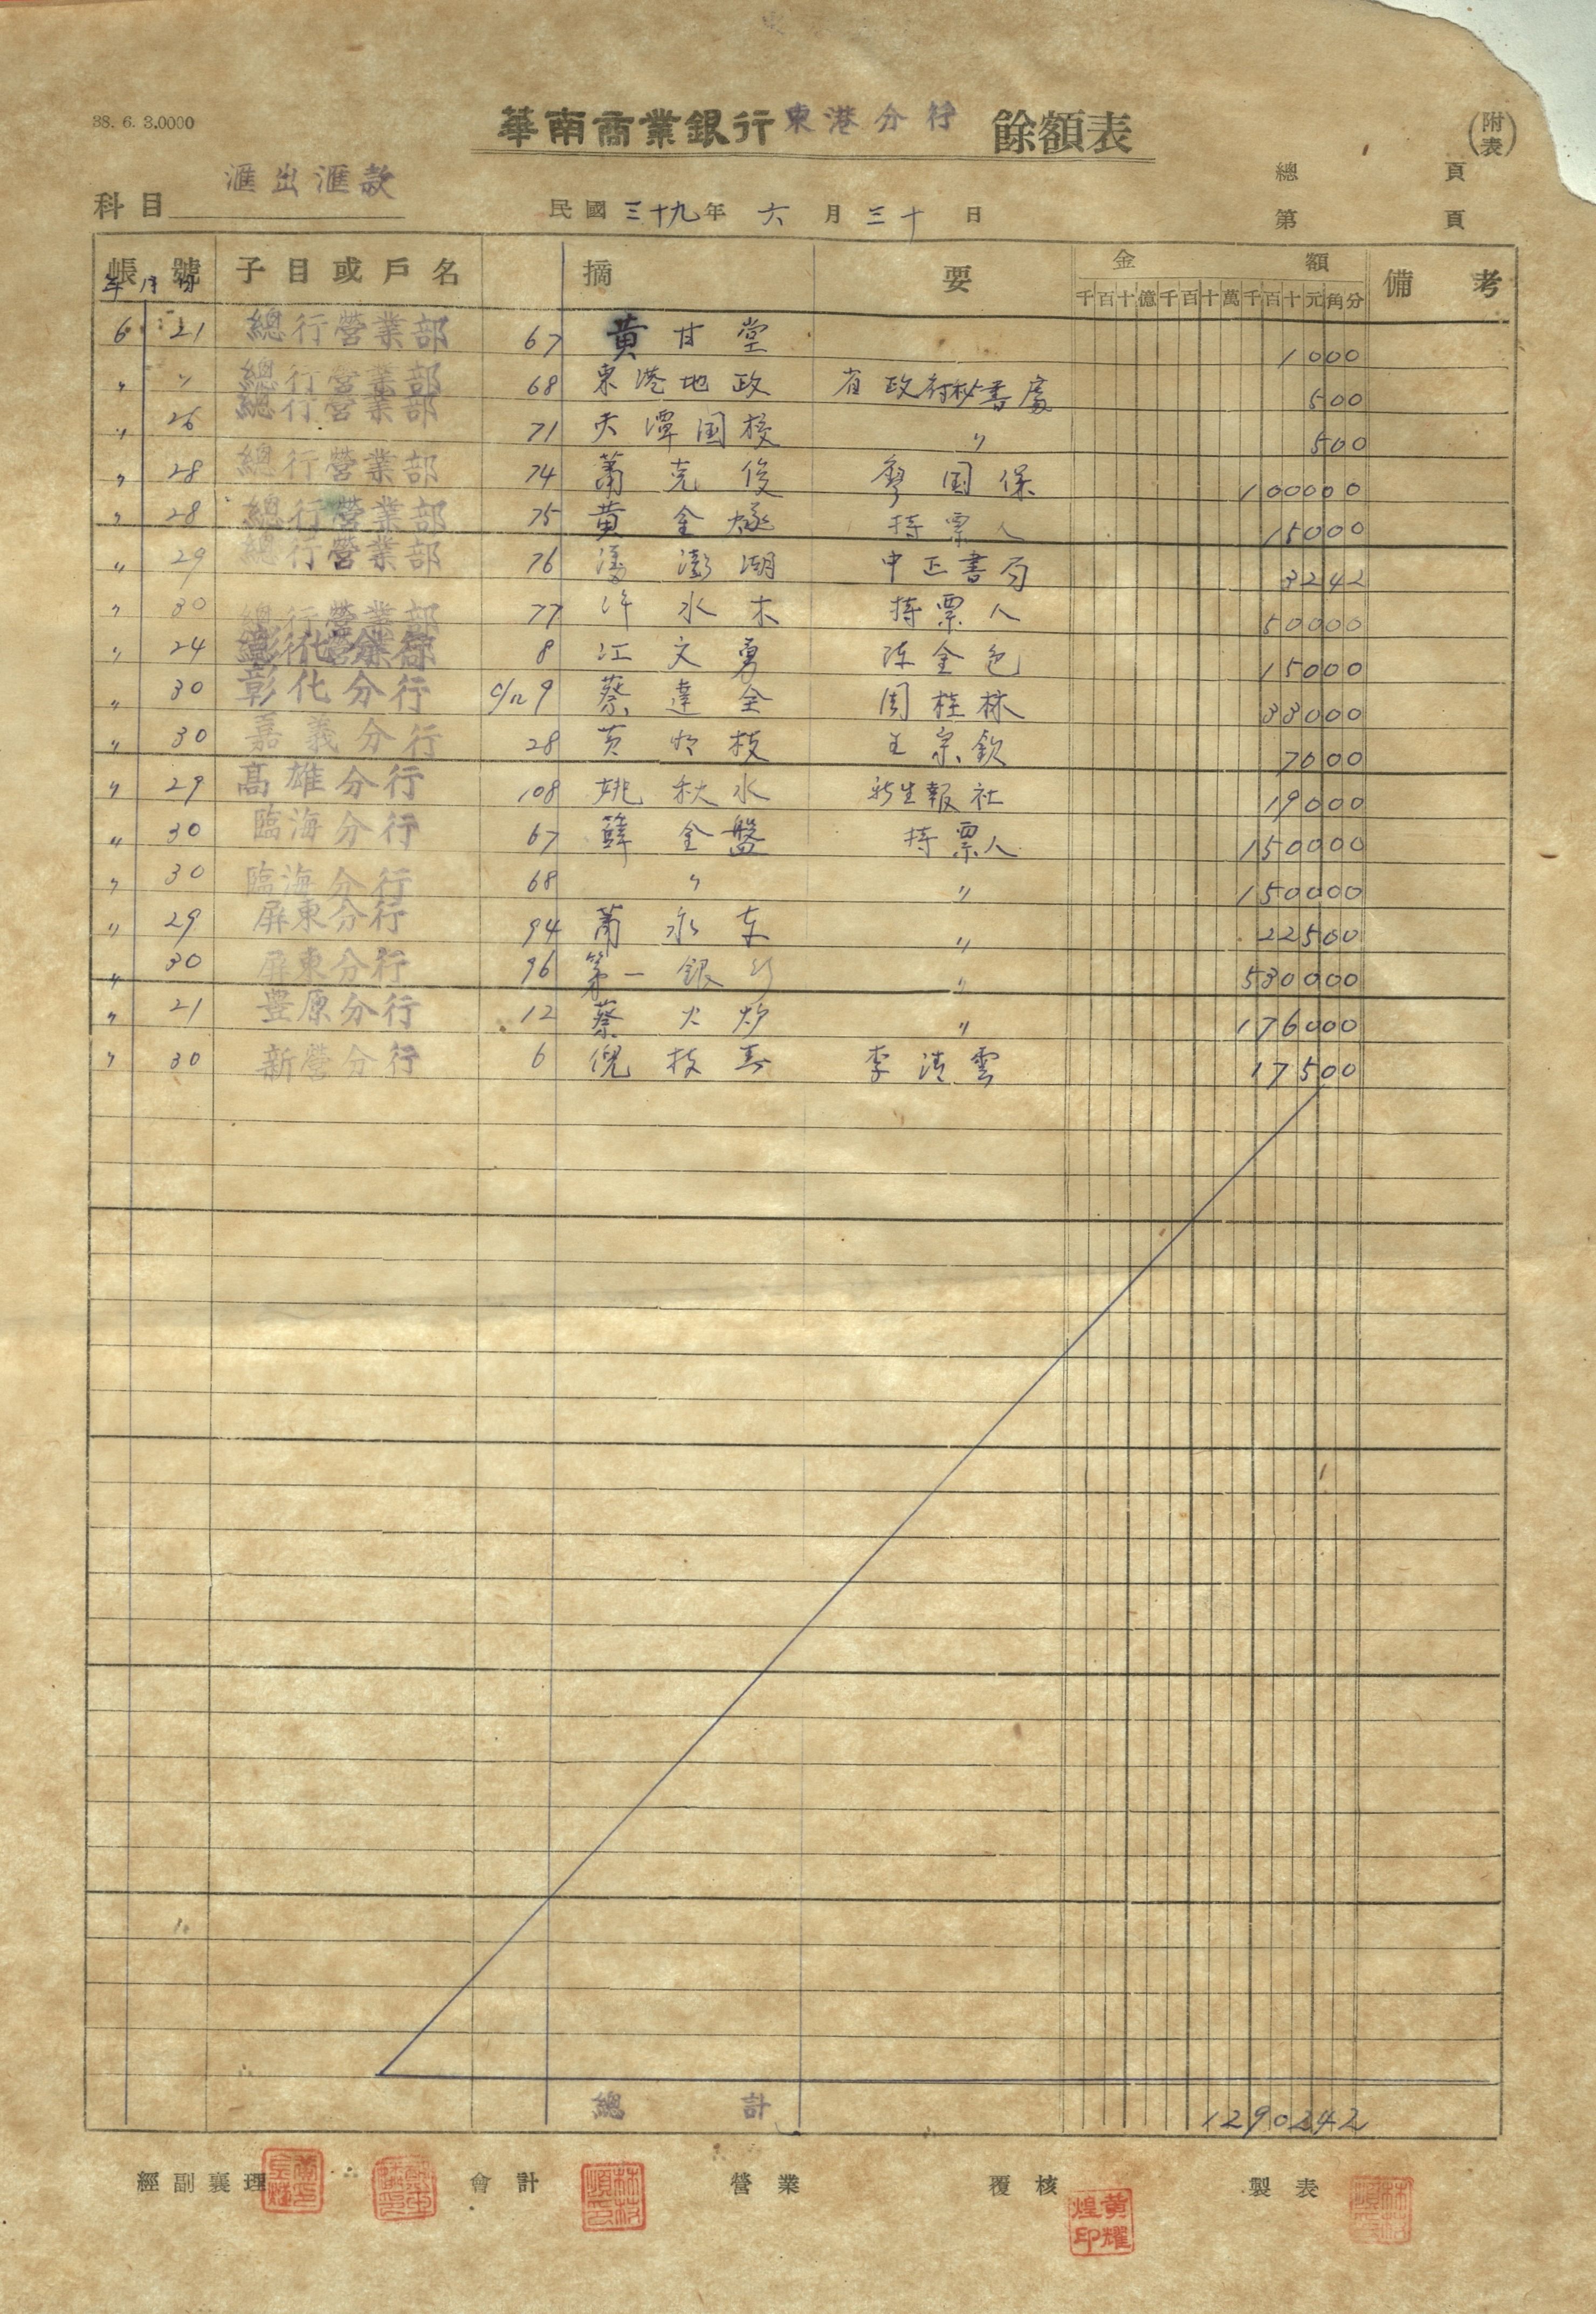 38. 6. 3.0000
華南商業銀行 東港分行 餘額表
(附表)
科目 滙出滙款
民國 三十九 年 六 月 三十 日
總 頁
第 頁
帳號 子目或戶名 摘要 金額 備考
年 月 千百十億千百十萬千百十元角分
6 21 總行營業部 67 黃甘堂 1000
〃 〃 總行營業部 68 東港地政 省政府秘書處 500
〃 26 總行營業部 71 潭国校 〃 500
〃 28 總行營業部 74 蕭克俊 廖国保 100000
〃 28 總行營業部 75 黃金 持票人 15000
〃 29 總行營業部 76 澎湖 中正書局 3242
〃 30 總行營業部 77 許水木 持票人 50000
〃 24 彰化分行 8 江文勇 陈金色 15000
〃 30 彰化分行 c/n 9 蔡達全 周桂林 33000
〃 30 嘉義分行 28 黄枝 王宗欽 7000
〃 29 高雄分行 108 姚秋水 新生報社 19000
〃 30 臨海分行 67 薛金盤 持票人 150000
〃 30 臨海分行 68 〃 〃 150000
〃 29 屏東分行 94 蕭永 〃 22500
〃 30 屏東分行 96 第一銀行 〃 530000
〃 21 豊原分行 12 蔡火炉 〃 176000
〃 30 新營分行 6 倪枝 李清雲 17500
總計 1290242
經副襄理 會計 營業 覆核 製表
黃耀煌印